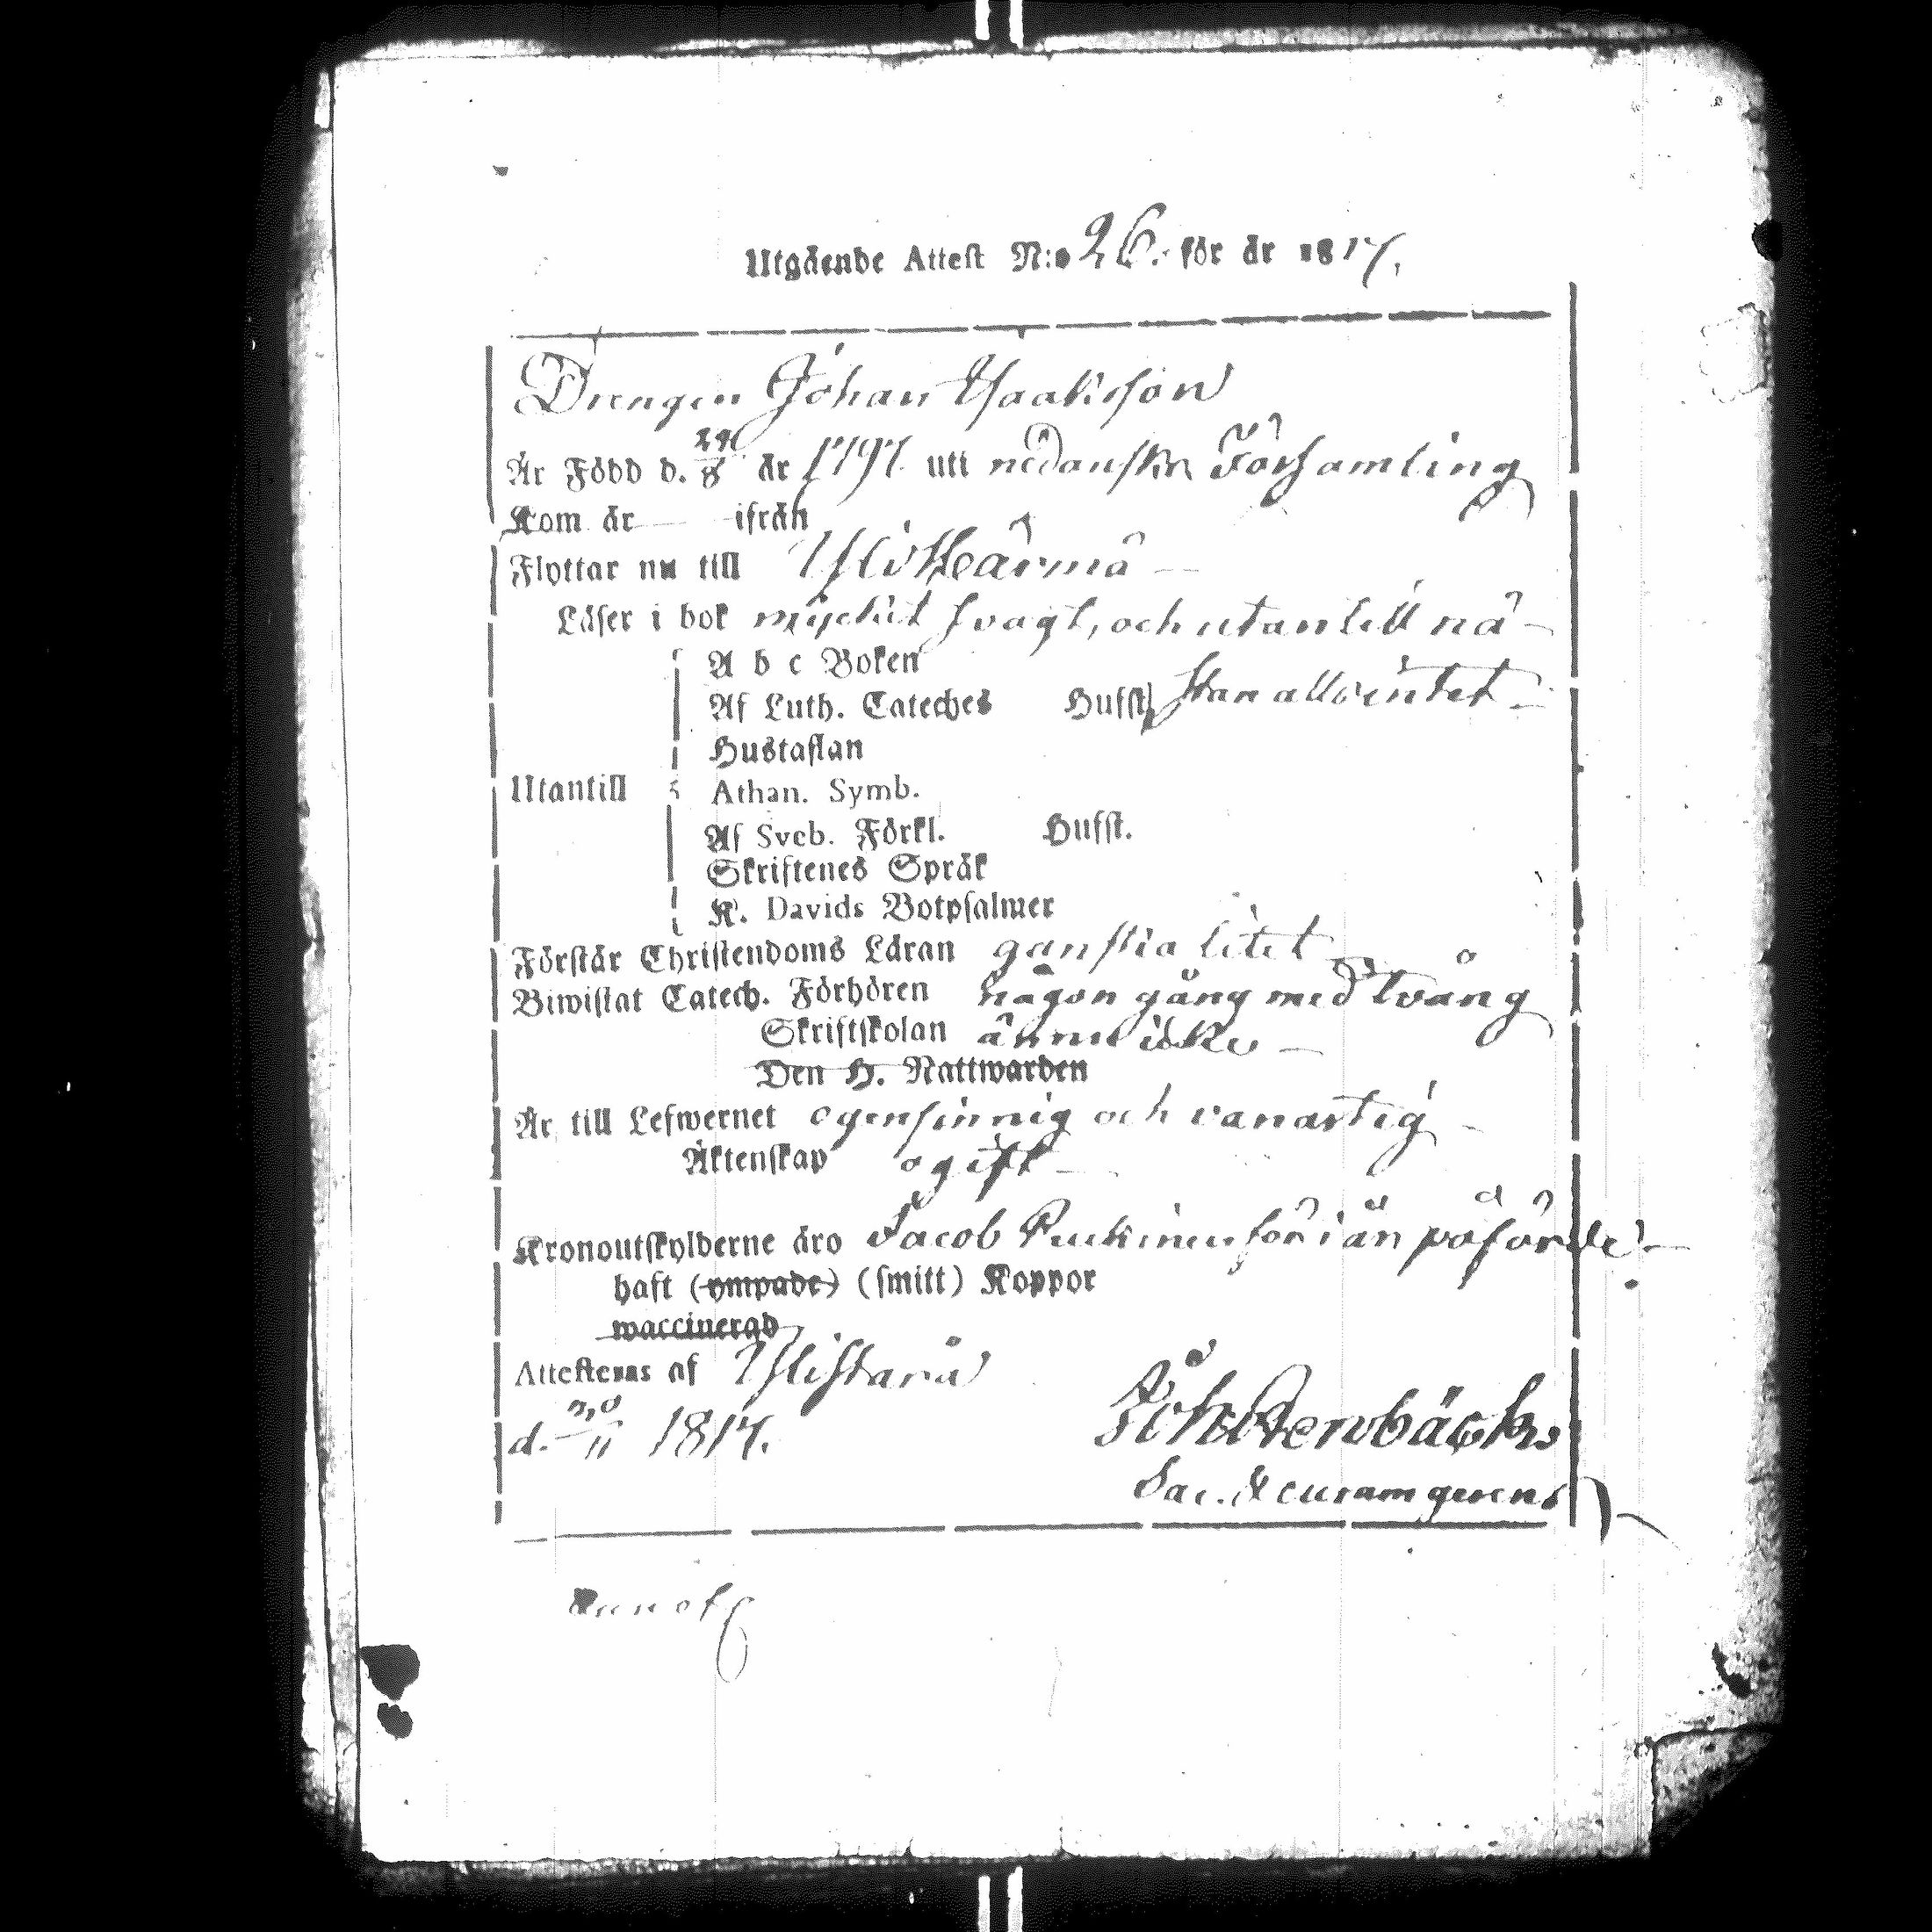 Utgående Attest N:o 26. för år 1817.
Drengen Johan Isaaksson
Är Född d. 24/8 år 1797 uti nedanskr. Församling
Kom år — ifrån
Flyttar nu till Ylihärmä —
Läser i bok mycket svagt, och utantill nä-
A b c Boken
Af Luth. Cateches Hufst. stan alls intet —
Hustaflan
Utantill
Athan. Symb.
Af Sveb. Förkl. Hufst.
Skriftenes Språk
K. Davids Botpsalmer
Förstår Christendoms Läran ganska litet —
Biwistat Catech. Förhören någon gång med tvång
Skriftskolan ännu icke —
Den H. Nattwarden
Är till Lefwernet egensinnig och vanartig —
Äktenskap ogift —
Kronoutskylderne äro Jacob för i år påförde —
haft (ympade) (smitt) Koppor
waccinerad
Attesteras af Ylistaro
d. 30/11 1817.
Sac. & curam gerens